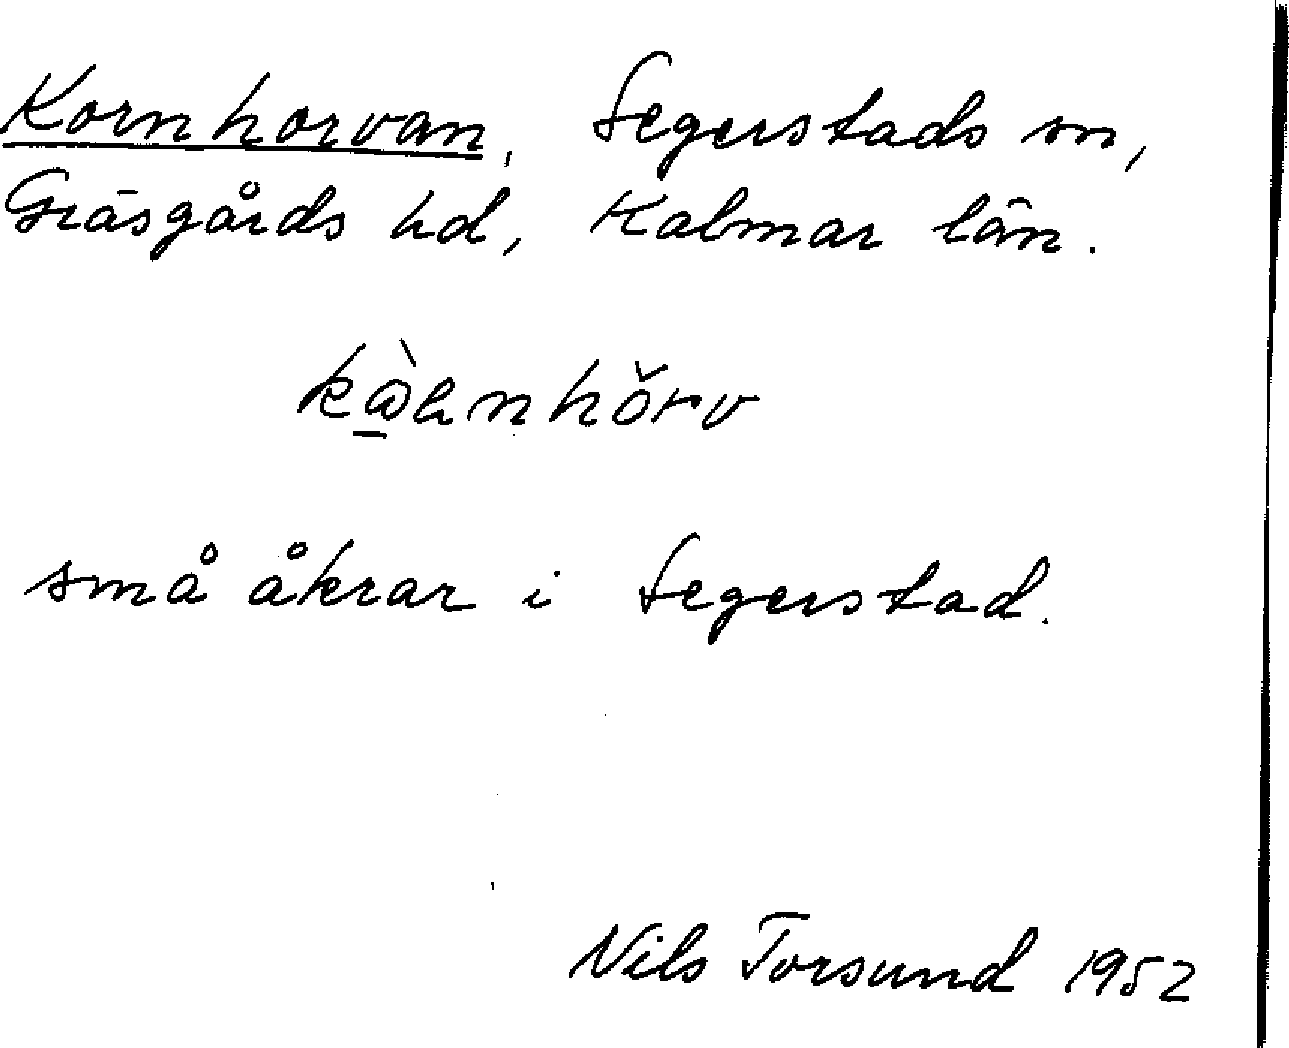 Kornhorvan, Segerstads sn,
Gräsgårds hd, Kalmar län.
små åkrar i Segerstad.
Nils Torsund 1952